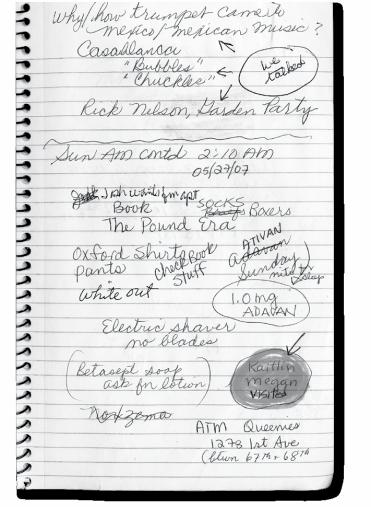 Why/how trumpet came to
Mexico/Mexican music?
Casablanca
"Bubbles"
"Chuckles"
we talked
Rick Nilson, Garden Party
Sun AM contd 2:10 AM
05/27/07
fm apt
Book SOCKS Boxers
The Pound Era
Oxford Shirts
pants
Check Book
Stuff
ATIVAN
Adavan
Sunday
White out
1.0 mg
ADAVAN
Electric shaver
no blades
(Betasept soap
ask fn lotion)
Kaitlin
megan
Visited
Noxzema
ATM Queenies
1278 1st Ave
(btwn 67th + 68th